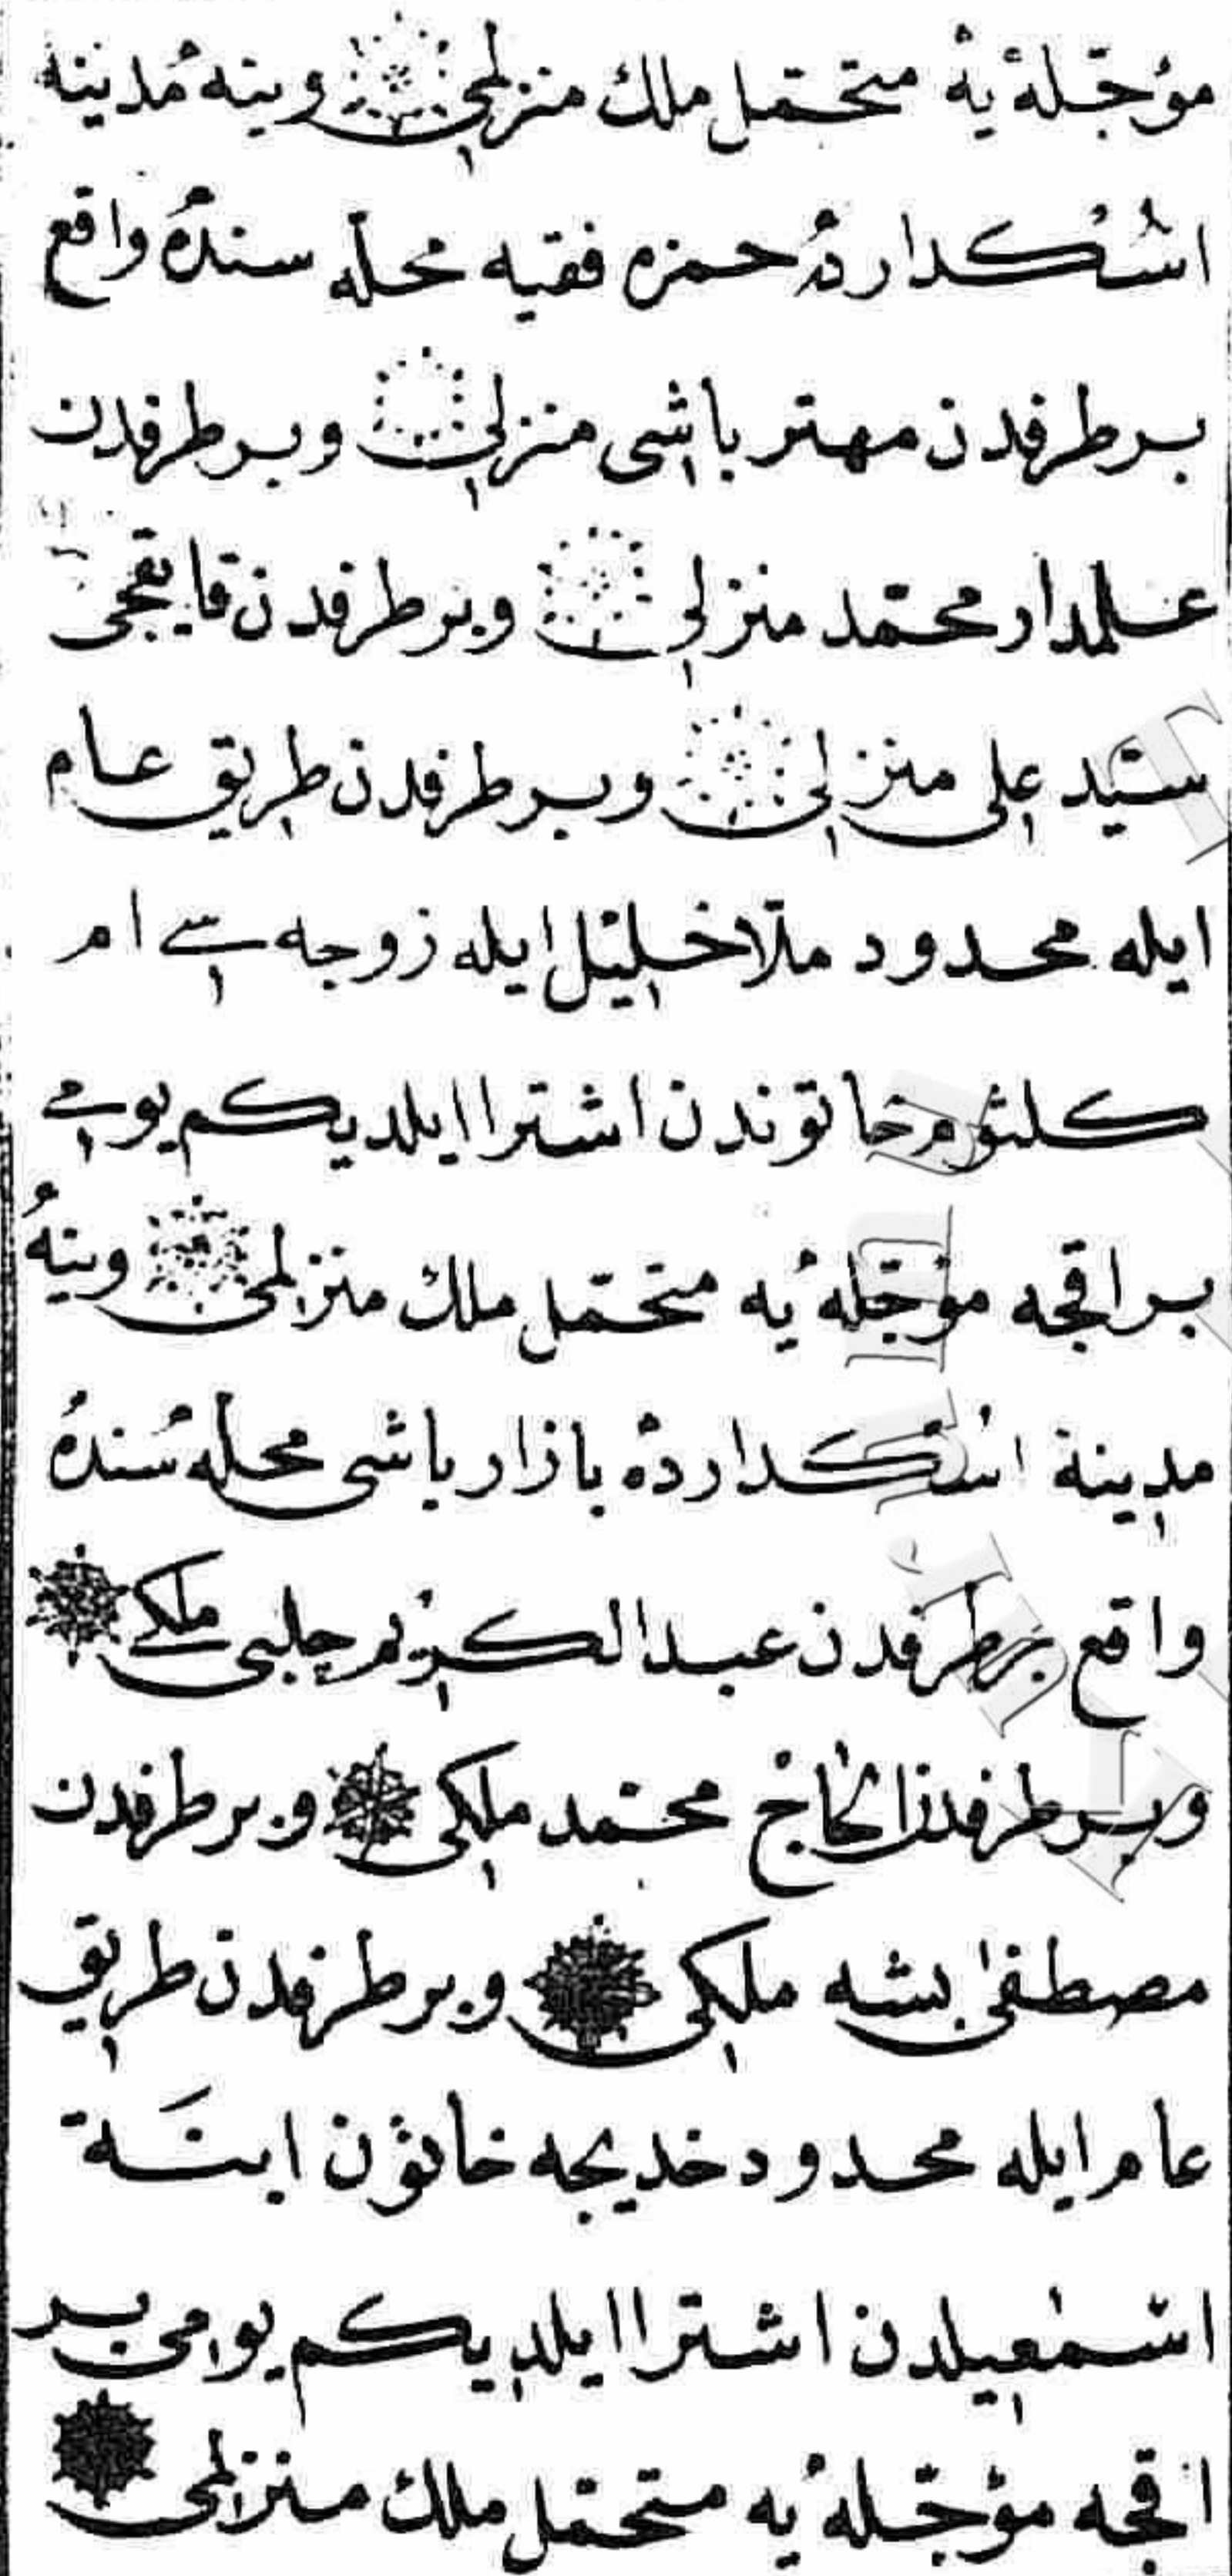 مؤجّلهٔ یه متحمّل ملك منزلمی وینه مدینهٔ
اسُكدارده حمزه فقیه محلّه سنده واقع
بر طرفدن مهتر باشی منزلی و بر طرفدن
علمدار محمّد منزلی و بر طرفدن قایقجی
سیّد علی منزلی و بر طرفدن طریق عام
ایله محدود ملّا خلیل ایله زوجه سی ام
كلثوم خاتوندن اشترا ایلدیكم یومی
بر اقچه مؤجّلهٔ یه متحمّل ملك منزلمی وینه
مدینة اسكدارده بازار باشی محله سنده
واقع بر طرفدن عبد الكریم چلبی ملكی
و بر طرفدن الحاج محمّد ملكی و بر طرفدن
مصطفی بشه ملكی و بر طرفدن طریق
عام ایله محدود خدیجه خاتون ابنة
اسمعیلدن اشترا ایلدیكم یومی بر
اقچه مؤجّلهٔ یه متحمّل ملك منزلمی